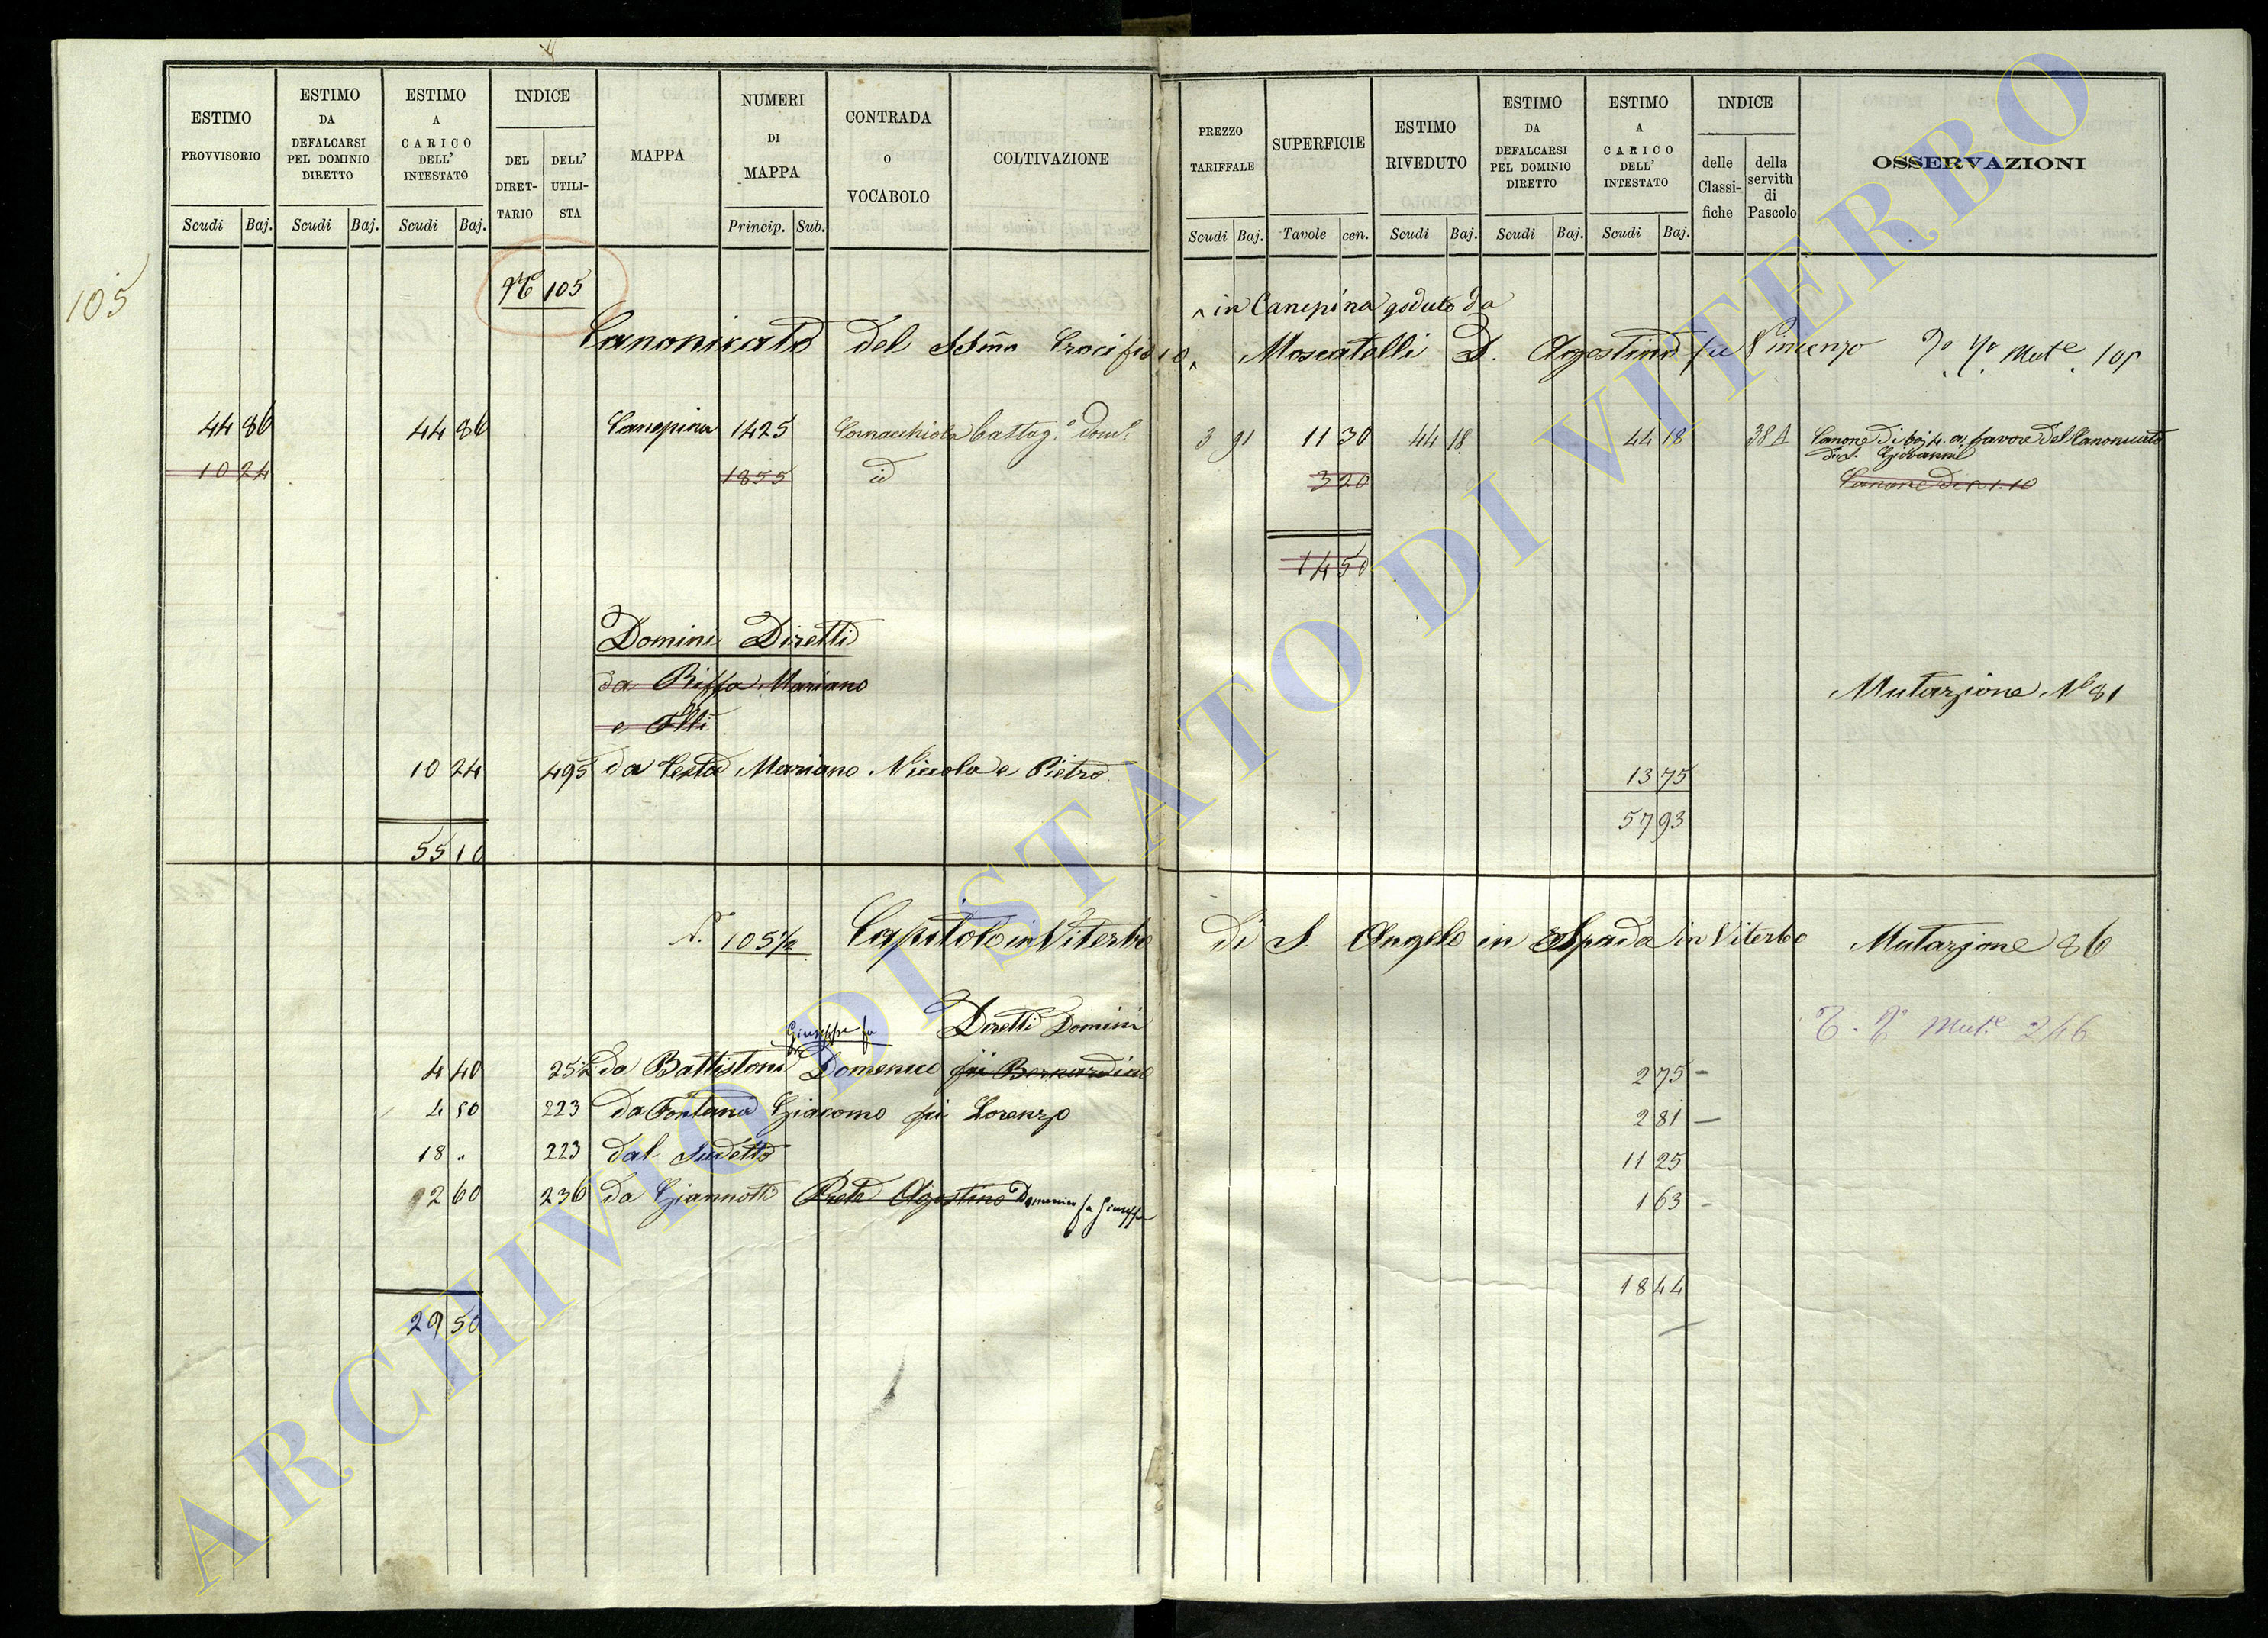 105
ESTIMO PROVVISORIO Scudi Baj.
ESTIMO DA DEFALCARSI PEL DOMINIO DIRETTO Scudi Baj.
ESTIMO A CARICO DELL' INTESTATO Scudi Baj.
INDICE DEL DIRET- TARIO DELL' UTILI- STA
MAPPA
NUMERI DI MAPPA Princip. Sub.
CONTRADA O VOCABOLO
COLTIVAZIONE
PREZZO TARIFFALE Scudi Baj.
SUPERFICIE Tavole cen.
ESTIMO RIVEDUTO Scudi Baj.
ESTIMO DA DEFALCARSI PEL DOMINIO DIRETTO Scudi Baj.
ESTIMO A CARICO DELL' INTESTATO Scudi Baj.
INDICE delle Classi- fiche della servitù di Pascolo
OSSERVAZIONI
N° 105
in Canepina goduto da
Canonicato del SSmo Crocifisso Moscatelli D. Agostino fu Vincenzo Mut.e 105
44 86 44 86 Canepina 1425 Cornacchiola Castag.o dom.e 3 91 11 30 44 18 44 18 38 A Canone di baj. 4 a favore del Canonicato
di S. Giovanni
10 24 1855 id 3 20 Canone di 1.10
14 50
Domini Diretti
da Riffa Mariano Mutazione N° 81
e Flli
10 24 495 da Testa Mariano Niccola e Pietro 13 75
55 10 57 93
N. 105 1/2 Capitolo in Viterbo di S. Angelo in Spada in Viterbo Mutazione 86
Diretti Domini Mut.e 246
Giuseppe fu
4 40 252 da Battistoni Domenico fu Bernardino 2 75
4 50 223 da Fontana Giacomo fu Lorenzo 2 81
18 " 223 dal Sudetto 11 25
2 60 236 da Giannotti Prete Agostino Domenico fu Giuseppe 1 63
29 50 18 44
ARCHIVIO DI STATO DI VITERBO